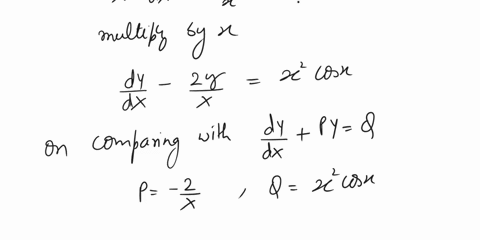 multiply by x
dy/dx - 2y/x = x² cosx
on comparing with dy/dx + Py = Q
P = -2/x , Q = x² cosx